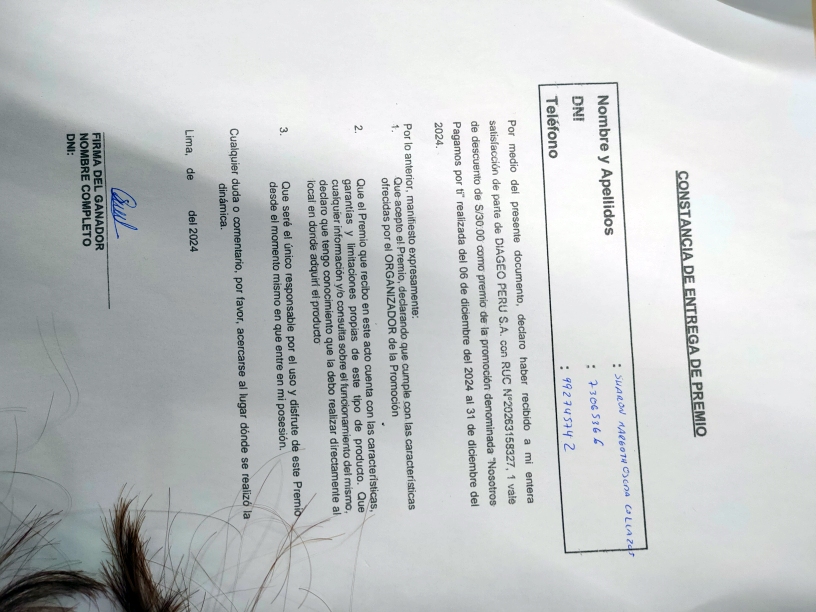 CONSTANCIA DE ENTREGA DE PREMIO
Nombre y Apellidos : SHARON MARGOTH OSCNA COLLAZOS
DNI : 73065366
Teléfono : 992745742
Por medio del presente documento, declaro haber recibido a mi entera
satisfacción de parte de DIAGEO PERU S.A. con RUC N°20263158327, 1 vale
de descuento de S/30.00 como premio de la promoción denominada "Nosotros
Pagamos por ti" realizada del 06 de diciembre del 2024 al 31 de diciembre del
2024.
Por lo anterior, manifiesto expresamente:
1. Que acepto el Premio, declarando que cumple con las características
ofrecidas por el ORGANIZADOR de la Promoción
2. Que el Premio que recibo en este acto cuenta con las características,
garantías y limitaciones propias de este tipo de producto. Que
cualquier información y/o consulta sobre el funcionamiento del mismo,
declaro que tengo conocimiento que la debo realizar directamente al
local en donde adquirí el producto
3. Que seré el único responsable por el uso y disfrute de este Premio
desde el momento mismo en que entre en mi posesión.
Cualquier duda o comentario, por favor, acercarse al lugar dónde se realizó la
dinámica.
Lima, de del 2024
FIRMA DEL GANADOR
NOMBRE COMPLETO
DNI: